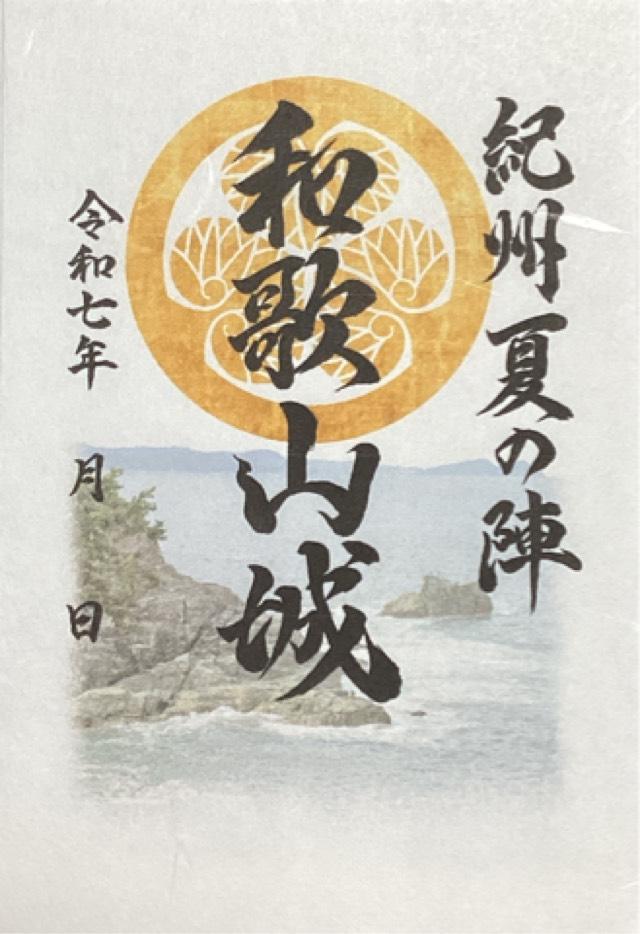 紀州夏の陣
和歌山城
令和七年 月 日